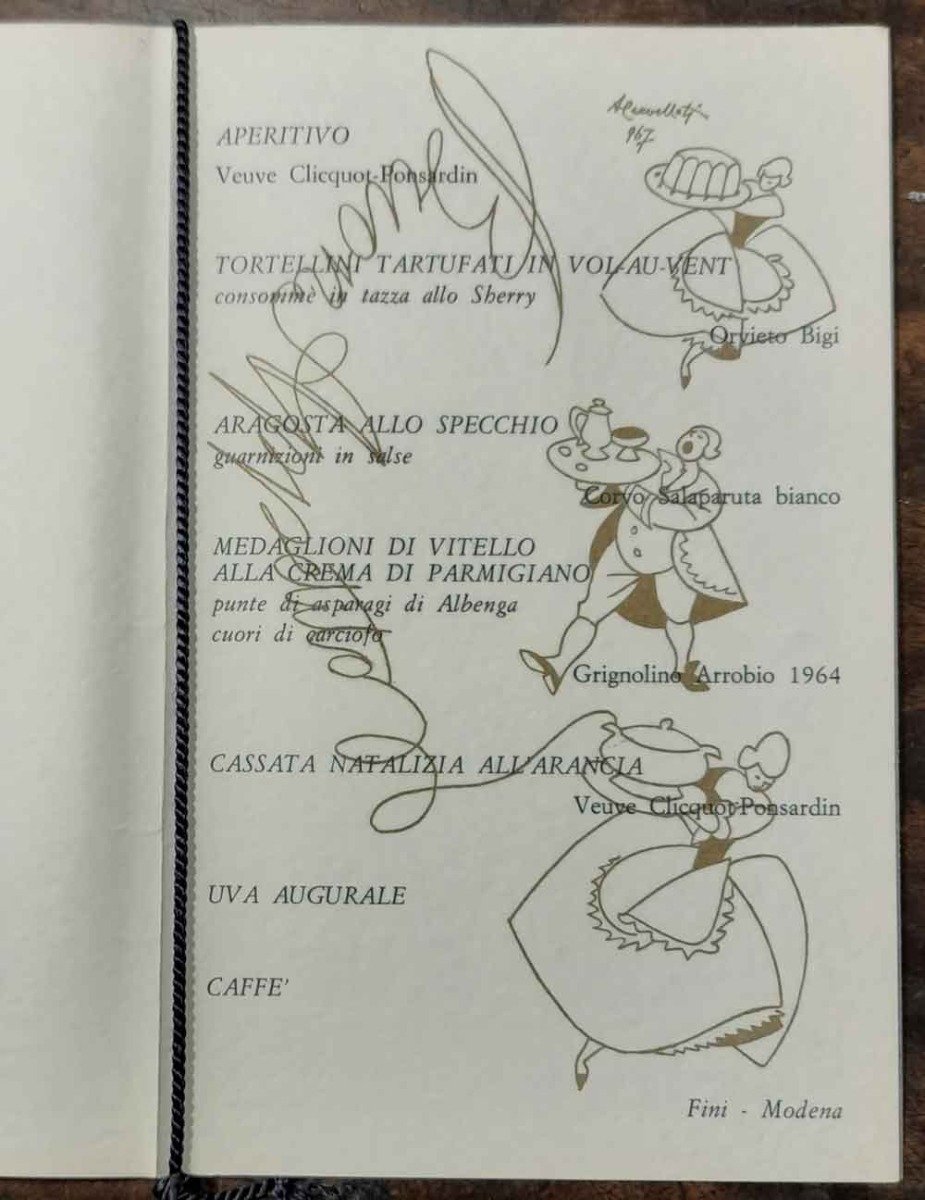 APERITIVO
Veuve Clicquot-Ponsardin
967
TORTELLINI TARTUFATI IN VOL-AU-VENT
consommè in tazza allo Sherry
Orvieto Bigi
ARAGOSTA ALLO SPECCHIO
guarnizioni in salse
Corvo Salaparuta bianco
MEDAGLIONI DI VITELLO
ALLA CREMA DI PARMIGIANO
punte di asparagi di Albenga
cuori di carciofo
Grignolino Arrobio 1964
CASSATA NATALIZIA ALL'ARANCIA
Veuve Clicquot-Ponsardin
UVA AUGURALE
CAFFE'
Fini - Modena